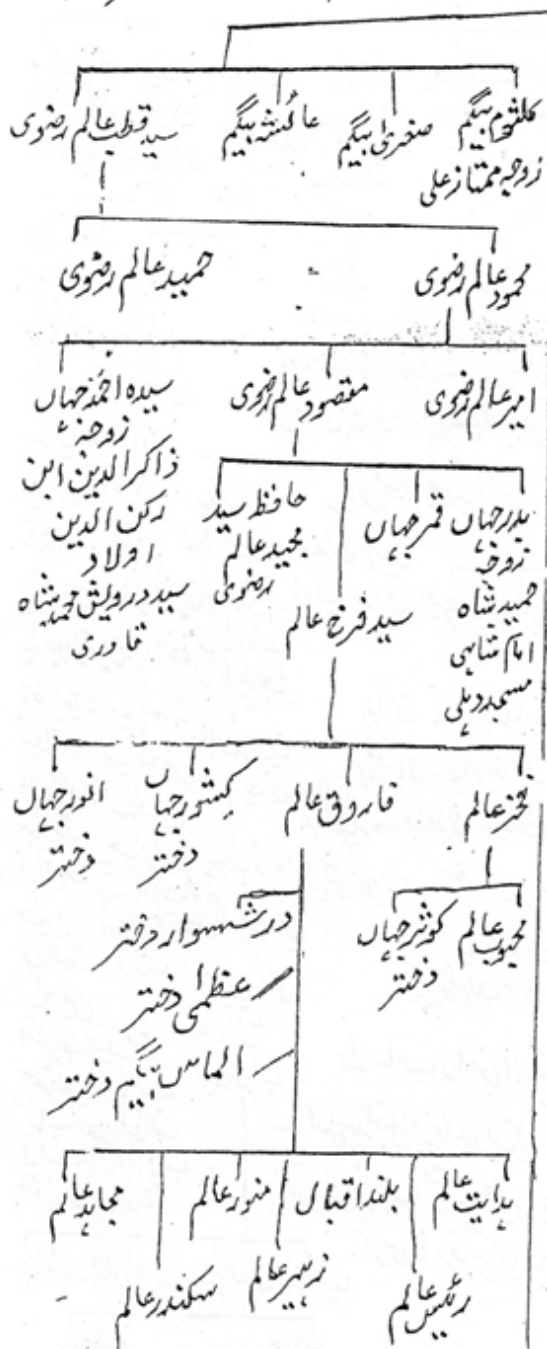 کلثوم بیگم
زوجہ ممتاز علی
صغریٰ بیگم
عائشہ بیگم
سید قطب عالم رضوی
محمود عالم رضوی
حمید عالم رضوی
امیر عالم رضوی
مقصود عالم رضوی
سیدہ احمد جہاں
زوجہ
ذاکر الدین ابن
رکن الدین
اولاد
سید درویش محمد شاہ
قادری
بدر جہاں
زوجہ
حمید شاہ
امام شاہی
مسجد دہلی
قمر جہاں
سید فرخ عالم
حافظ سید
مجید عالم
رضوی
فخر عالم
فاروق عالم
کشور جہاں
دختر
انور جہاں
دختر
محبوب عالم
کوثر جہاں
دختر
در شہسوار دختر
عظمیٰ دختر
الماس بیگم دختر
ہدایت عالم
رئیس عالم
بلند اقبال
زبیر عالم
منور عالم
سکندر عالم
مجاہد عالم